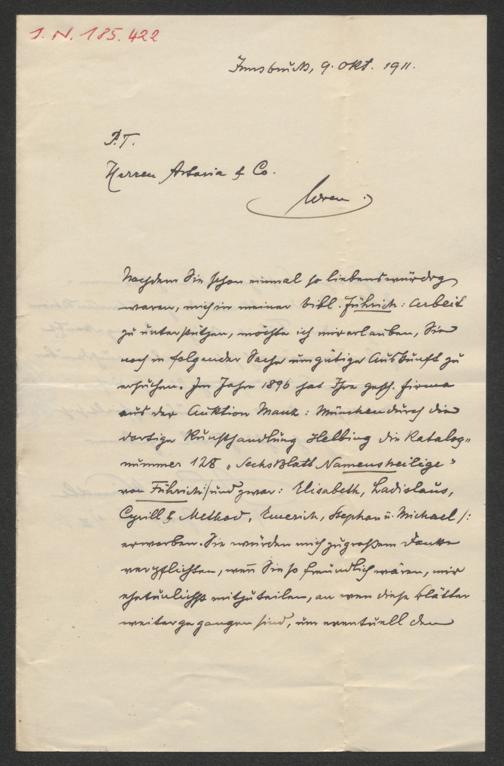 I. N. 185.422
Innsbruck, 9. Okt. 1911.
P. T.
Herren Artaria & Co.
Wien.
Nachdem Sie schon einmal so liebenswürdig
waren, mich in meiner bibl. Führich: Arbeit
zu unterstützen, möchte ich mir erlauben, Sie
noch in folgender Sache um gütige Auskunft zu
ersuchen. Im Jahre 1896 hat Ihre gesch. Firma
aus der Auktion Manz: München durch die
dortige Kunsthandlung Helbing die Katalog-
nummer 128 „Sechs Blatt Namensheilige"
von Führich /: und zwar: Elisabeth, Ladislaus,
Cyrill & Method, Emerich, Stephan u. Michael /:
erworben. Sie würden mich zu großem Danke
verpflichten, wenn Sie so freundlich wären, mir
ehetunlichst mitzuteilen, an wen diese Blätter
weitergegangen sind, um eventuell den